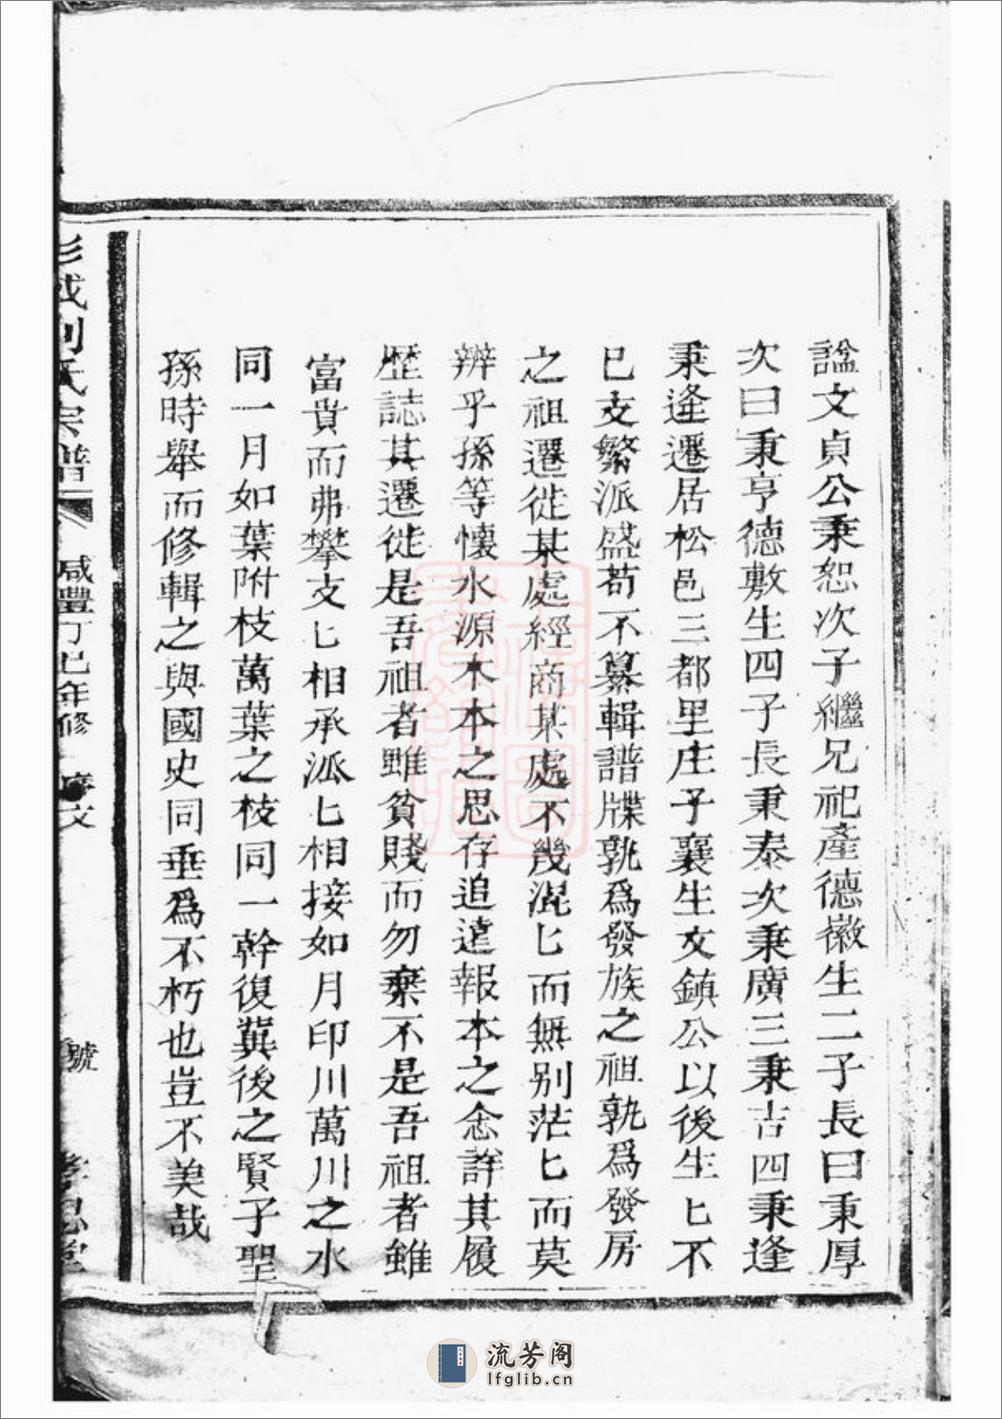 諡文貞公秉恕次子繼兄祀產德徽生二子長曰秉厚
次曰秉亨德敷生四子長秉泰次秉廣三秉吉四秉逢
秉逢遷居松邑三都里庄子襄生文鎮公以後生匕不
已支繁派盛苟不纂輯譜牒孰為發族之祖孰為發房
之祖遷徙某處經商某處不幾混匕而無別茫匕而莫
辨乎孫等懷水源木本之思存追遠報本之念詳其履
歷誌其遷徙是吾祖者雖貧賤而勿棄不是吾祖者雖
富貴而弗攀支匕相承派匕相接如月印川萬川之水
同一月如葉附枝萬葉之枝同一幹復冀後之賢子聖
孫時舉而修輯之與國史同垂為不朽也豈不美哉
彭城劉氏宗譜
咸豐丁巳年修
序文
號
孝思堂
流芳阁
lfglib.cn